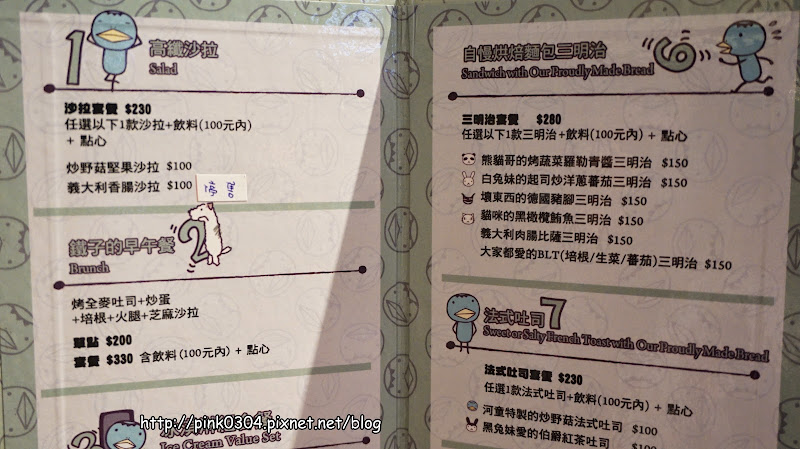 1 高纖沙拉
Salad
沙拉套餐 $230
任選以下1款沙拉+飲料(100元內)
+ 點心
炒野菇堅果沙拉 $100
義大利香腸沙拉 $100 停售
鐵子的早午餐 2
Brunch
烤全麥吐司+炒蛋
+培根+火腿+芝麻沙拉
單點 $200
套餐 $330 含飲料(100元內) + 點心
3
Ice Cream Value Set
自慢烘焙麵包三明治 6
Sandwich with Our Proudly Made Bread
三明治套餐 $280
任選以下1款三明治+飲料(100元內) + 點心
熊貓哥的烤蔬菜羅勒青醬三明治 $150
白兔妹的起司炒洋蔥蕃茄三明治 $150
壞東西的德國豬腳三明治 $150
貓咪的黑橄欖鮪魚三明治 $150
義大利肉腸比薩三明治 $150
大家都愛的BLT(培根/生菜/蕃茄)三明治 $150
法式吐司 7
Sweet or Salty French Toast with Our Proudly Made Bread
法式吐司套餐 $230
任選1款法式吐司+飲料(100元內) + 點心
河童特製的炒野菇法式吐司 $100
黑兔妹愛的伯爵紅茶吐司 $100
http://pink0304.pixnet.net/blog